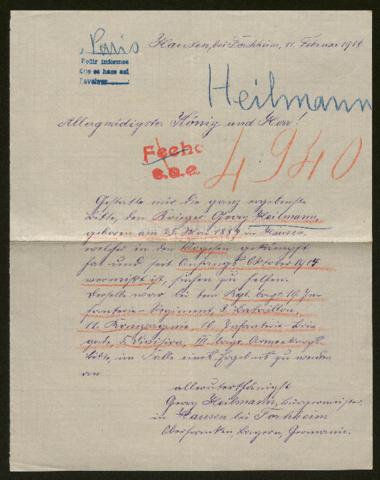 Paris
Pedir informes
Que se hace así
Hausen, bei Forchheim, 11. Februar 19
Heilmann
Allergnädigster König und Herr!
Fecho
e.o.e.
4940
Gestatte mir die ganz ergebenste
Bitte, den Krieger Georg Heilmann,
geboren am 25. 1889 in Hausen,
welcher in den Vogesen gekämpft
hat und seit Anfangs Oktober 1914
vermißt ist, suchen zu helfen.
Derselbe war bei dem Kgl. bayr. 19. In-
fanterie-Regiment, 3. Bataillon,
11. Kompagnie, 10. Infanterie-Bri-
gade, 5. Division, III. bayr. Armeekorps
Bitte, im Falle eines zu
an
alleruntertänigst
Georg Heilmann, Bürgermeister
in Hausen bei Forchheim
Oberfranken Bayern, Germanie.